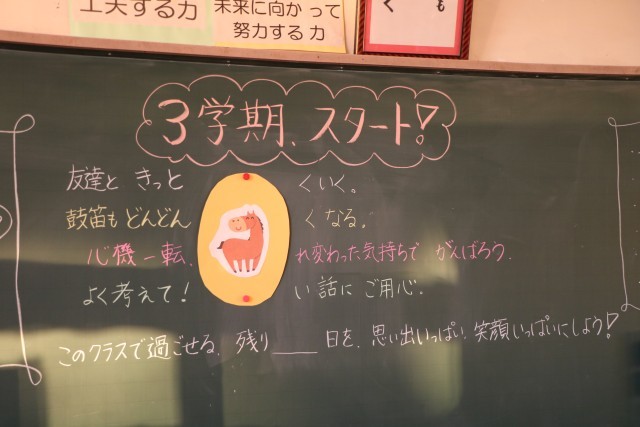 工夫する力
未来に向かって
努力する力
く も
3学期、スタート!
友達と きっと くいく。
鼓笛も どんどん くなる。
心機一転、 れ変わった気持ちで がんばろう。
よく考えて! い話に ご用心。
このクラスで過ごせる、残り____日を、思い出いっぱい 笑顔いっぱいにしよう!